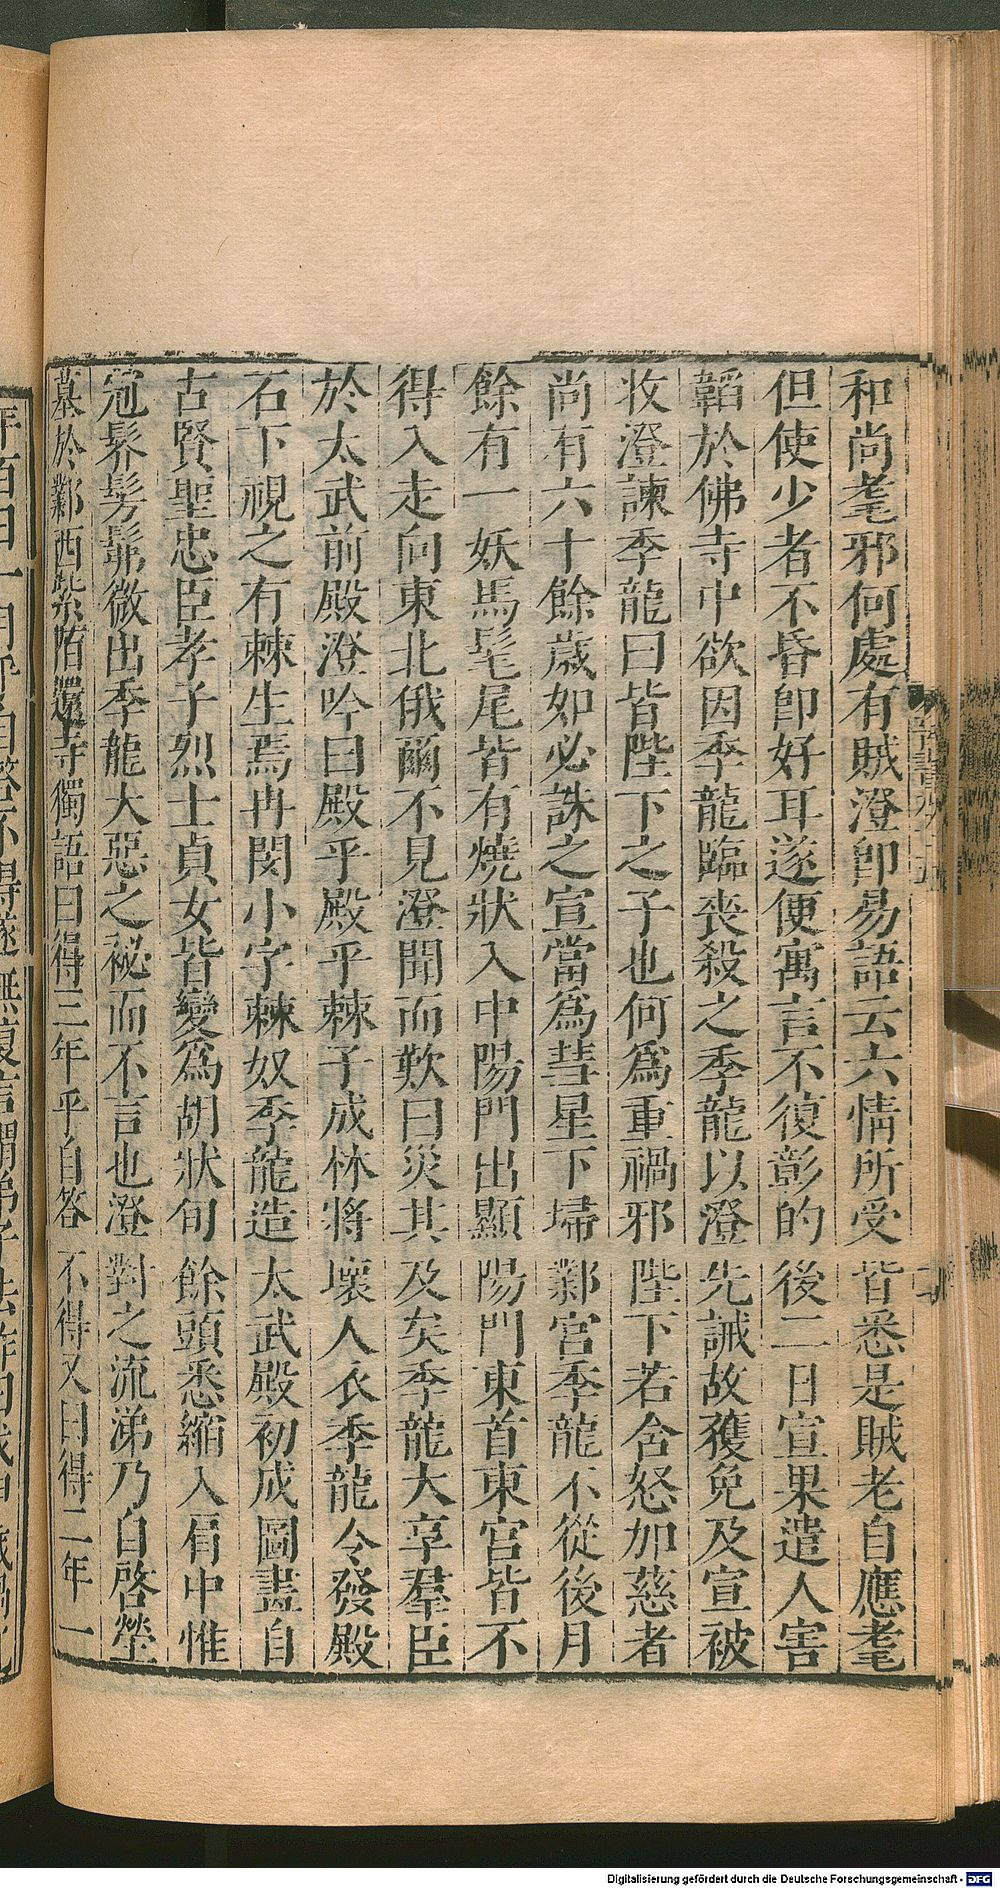 和尚耄邪何處有賊澄卽易語云六情所受皆悉是賊老自應耄
但使少者不昏卽好耳遂便寓言不復彰的後二日宣果遣人害
韜於佛寺中欲因季龍臨喪殺之季龍以澄先誡故獲免及宣被
收澄諫季龍曰皆陛下之子也何爲重禍邪陛下若含怒加慈者
尚有六十餘歲如必誅之宣當爲彗星下埽鄴宮季龍不從後月
餘有一妖馬髦尾皆有燒狀入中陽門出顯陽門東首東宮皆不
得入走向東北俄爾不見澄聞而歎曰災其及矣季龍大享羣臣
於太武前殿澄吟曰殿乎殿乎棘子成林將壞人衣季龍令發殿
石下視之有棘生焉冉閔小字棘奴季龍造太武殿初成圖畫自
古賢聖忠臣孝子烈士貞女皆變爲胡狀旬餘頭悉縮入肩中惟
冠䯰髣髴微出季龍大惡之祕而不言也澄對之流涕乃自啓塋
墓於鄴西紫陌還寺獨語曰得三年乎自答不得又曰得二年一
Digitalisierung gefördert durch die Deutsche Forschungsgemeinschaft - DFG